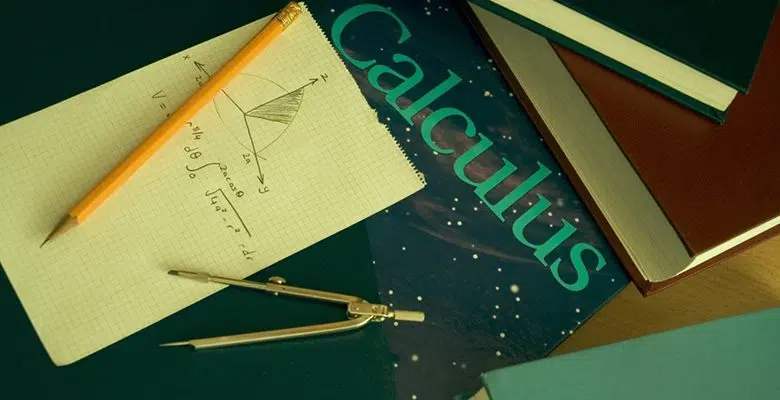 Calculus
x
z
2a
y
V =
dθ ∫₀^{2acosθ} √(4a² - r²) r dr